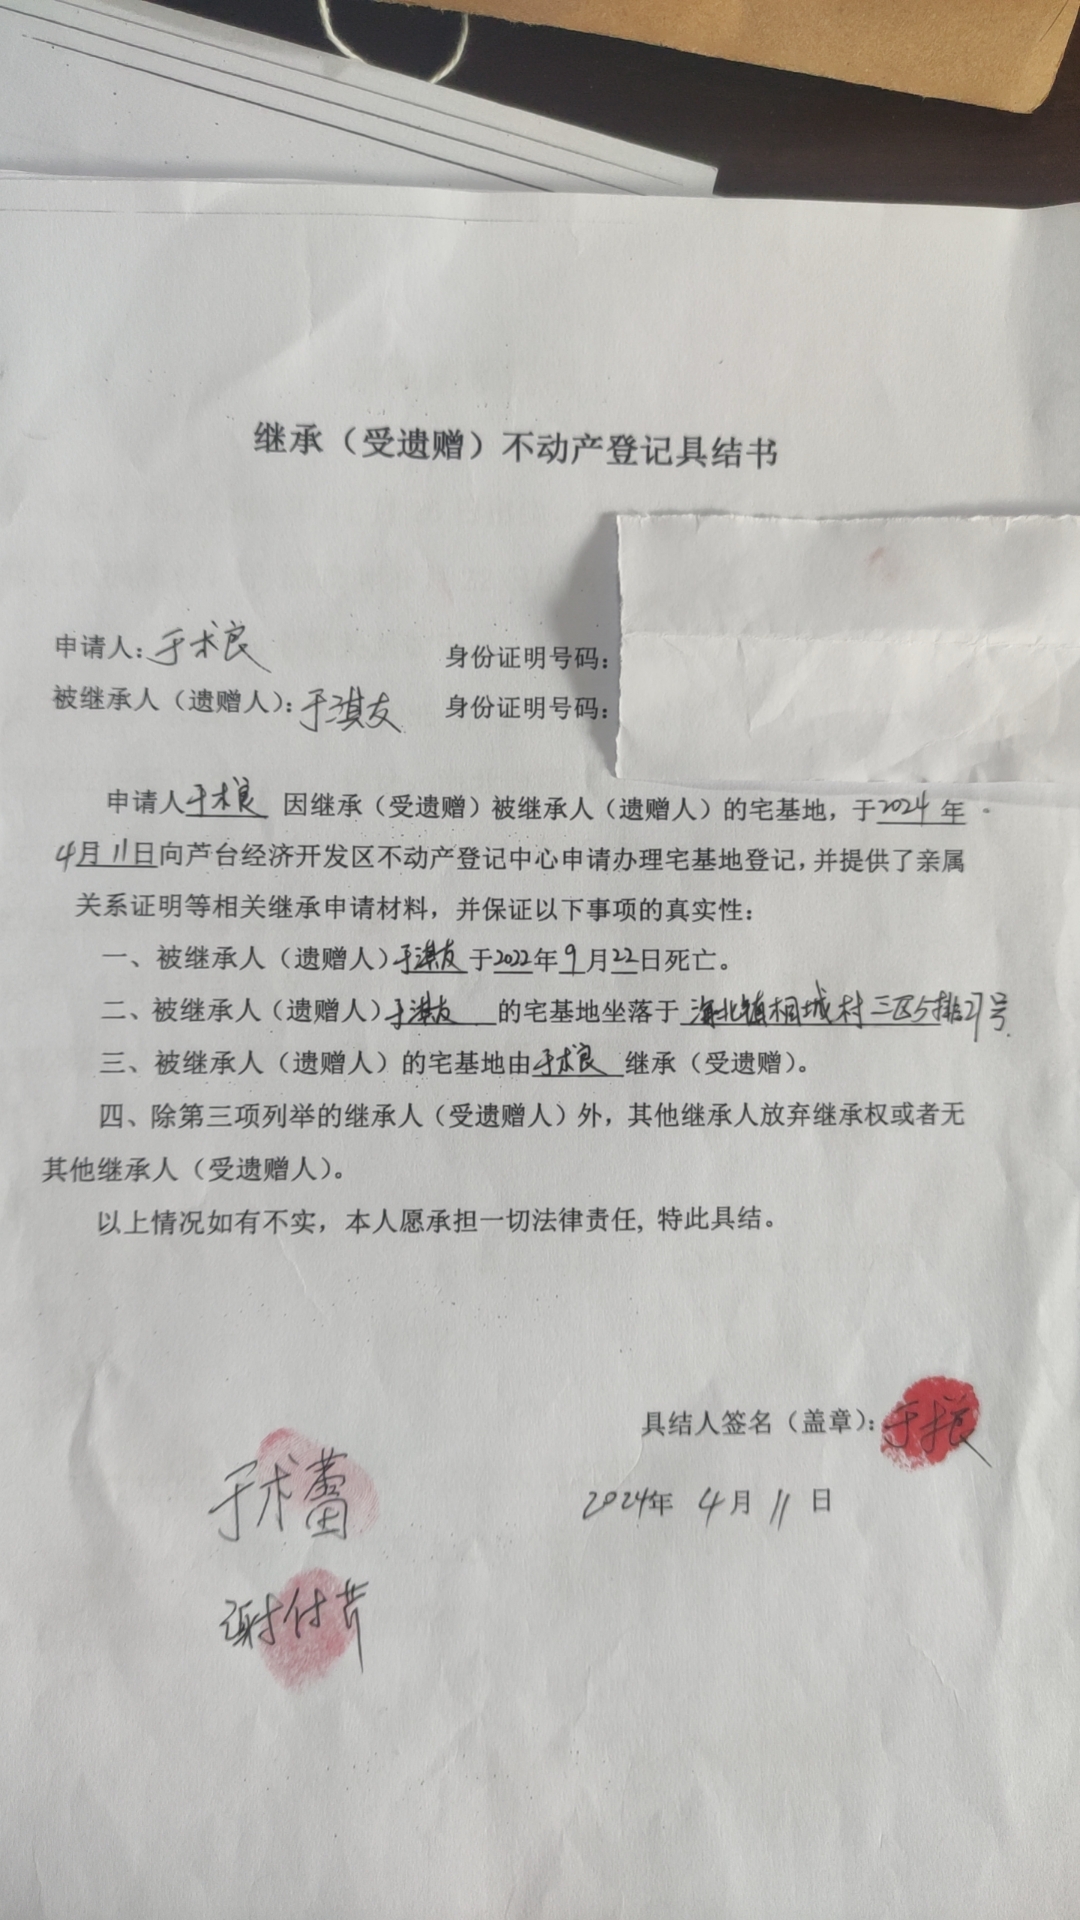 继承（受遗赠）不动产登记具结书
申请人：于术良 身份证明号码：
被继承人（遗赠人）：于淇友 身份证明号码：
申请人于术良 因继承（受遗赠）被继承人（遗赠人）的宅基地，于2024年
4月11日向芦台经济开发区不动产登记中心申请办理宅基地登记，并提供了亲属
关系证明等相关继承申请材料，并保证以下事项的真实性：
一、被继承人（遗赠人）于淇友于2022年9月22日死亡。
二、被继承人（遗赠人）于淇友 的宅基地坐落于 海北镇桐城村三区5排27号
三、被继承人（遗赠人）的宅基地由于术良 继承（受遗赠）。
四、除第三项列举的继承人（受遗赠人）外，其他继承人放弃继承权或者无
其他继承人（受遗赠人）。
以上情况如有不实，本人愿承担一切法律责任，特此具结。
具结人签名（盖章）：于术良
于术蕾
2024年 4月 11日
谢付芹